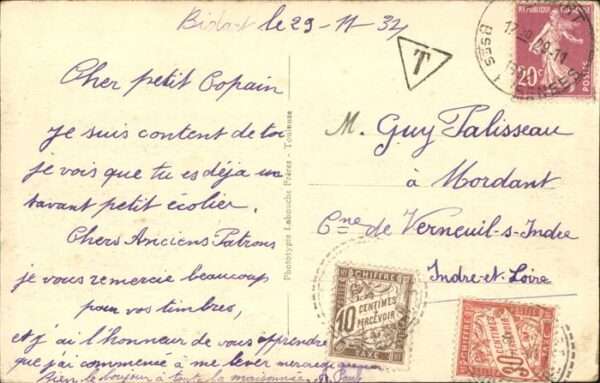 Bidart le 29-11-34
Cher petit Copain
Je suis content de toi
je vois que tu es déja un
savant petit écolier.
Chers Anciens Patrons
je vous remercie beaucoup
pour vos timbres,
et j'ai l'honneur de vous apprendre
que j'ai commencé a me lever
Bien le bonjour à toute la maisonnée
Phototypie Labouche Frères - Toulouse
T
M. Guy Palisseau
à Mordant
Cne de Verneuil-s-Indre
Indre-et-Loire
RÉPUBLIQUE
20c
POSTES
29-11
CHIFFRE
10
CENTIMES
A
PERCEVOIR
TAXE
30
CENTIMES